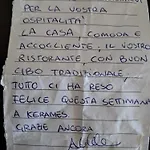 PER LA VOSTRA
OSPITALITA'
LA CASA, COMODA E
ACCOGLIENTE, IL VOSTRO
RISTORANTE, CON BUON
CIBO TRADIZIONALE,
TUTTO CI HA RESO
FELICE QUESTA SETTIMANA
A KERAMES
GRAZIE ANCORA